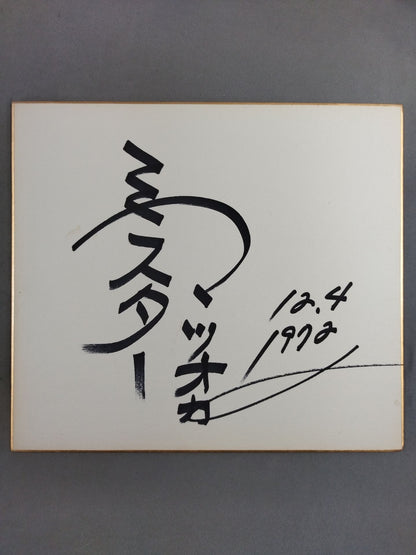 ミスター
マツオカ
12.4
1972